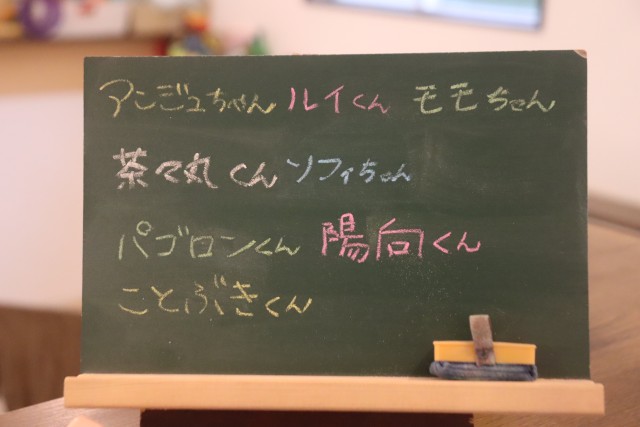 アンジュちゃん ルイくん モモちゃん
茶々丸くん ソフィちゃん
パゴロンくん 陽向くん
ことぶきくん